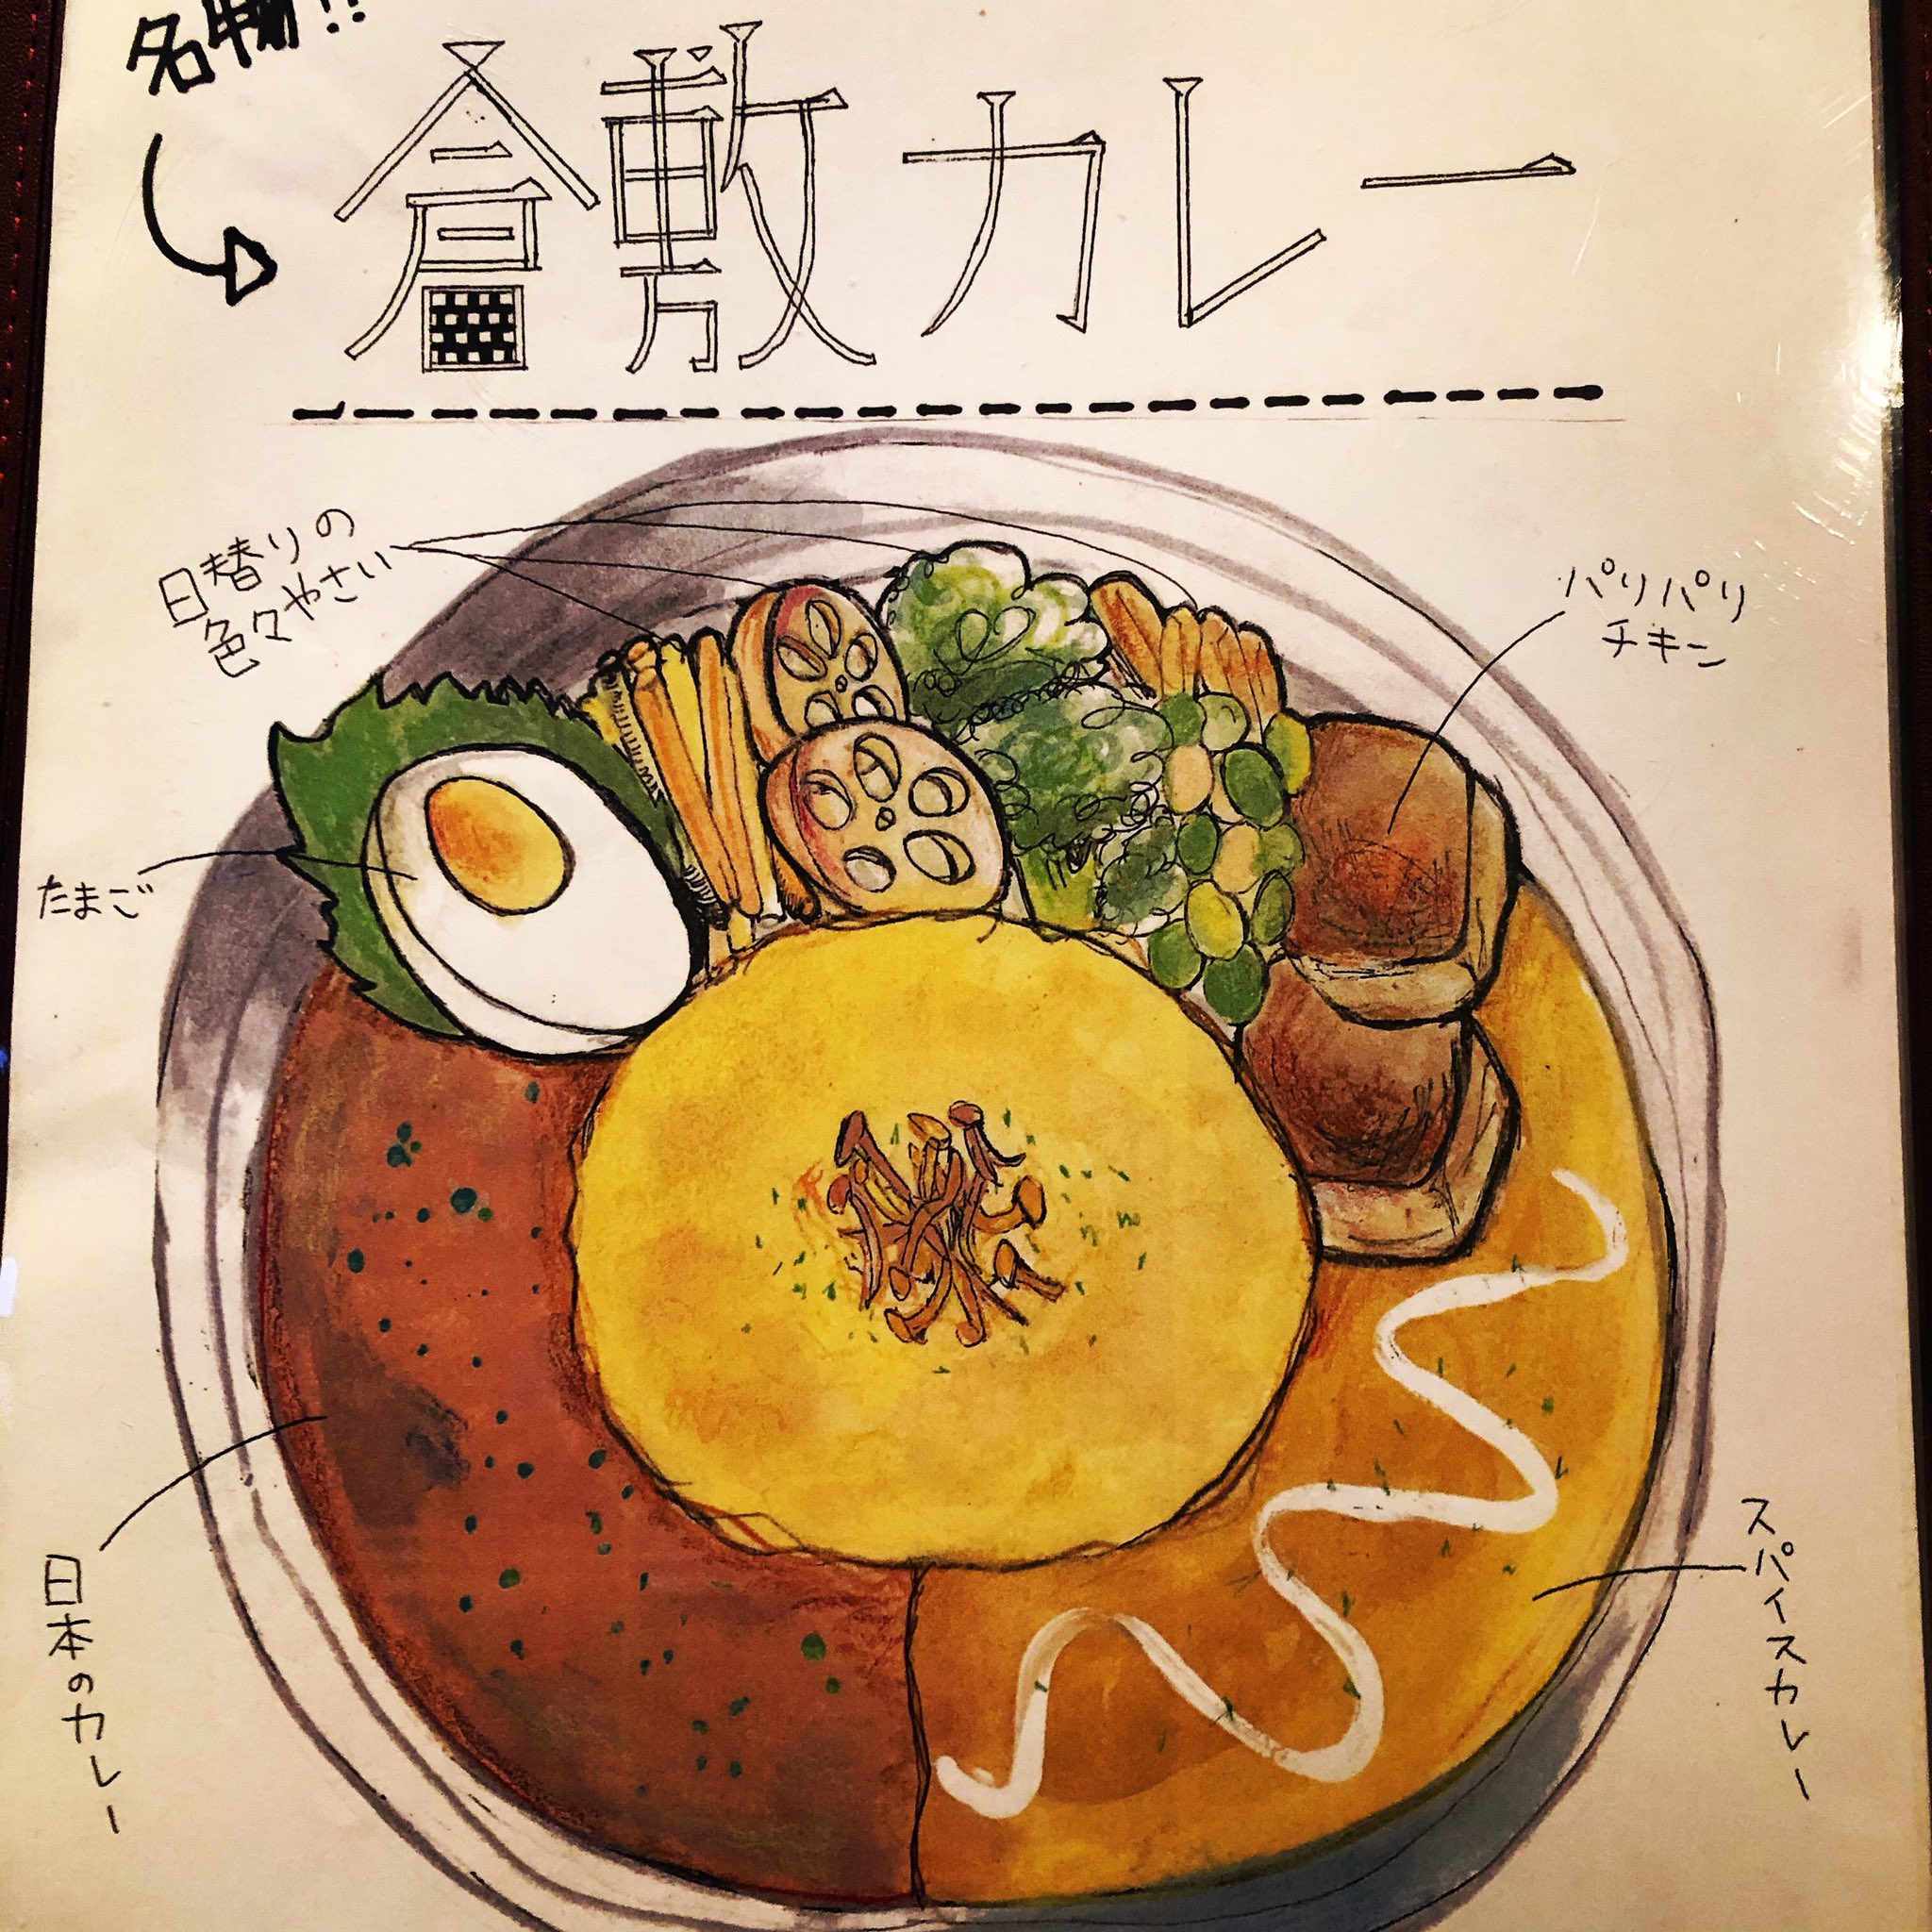 名物!!
倉敷カレー
日替りの
色々やさい
パリパリ
チキン
たまご
日本のカレー
スパイスカレー